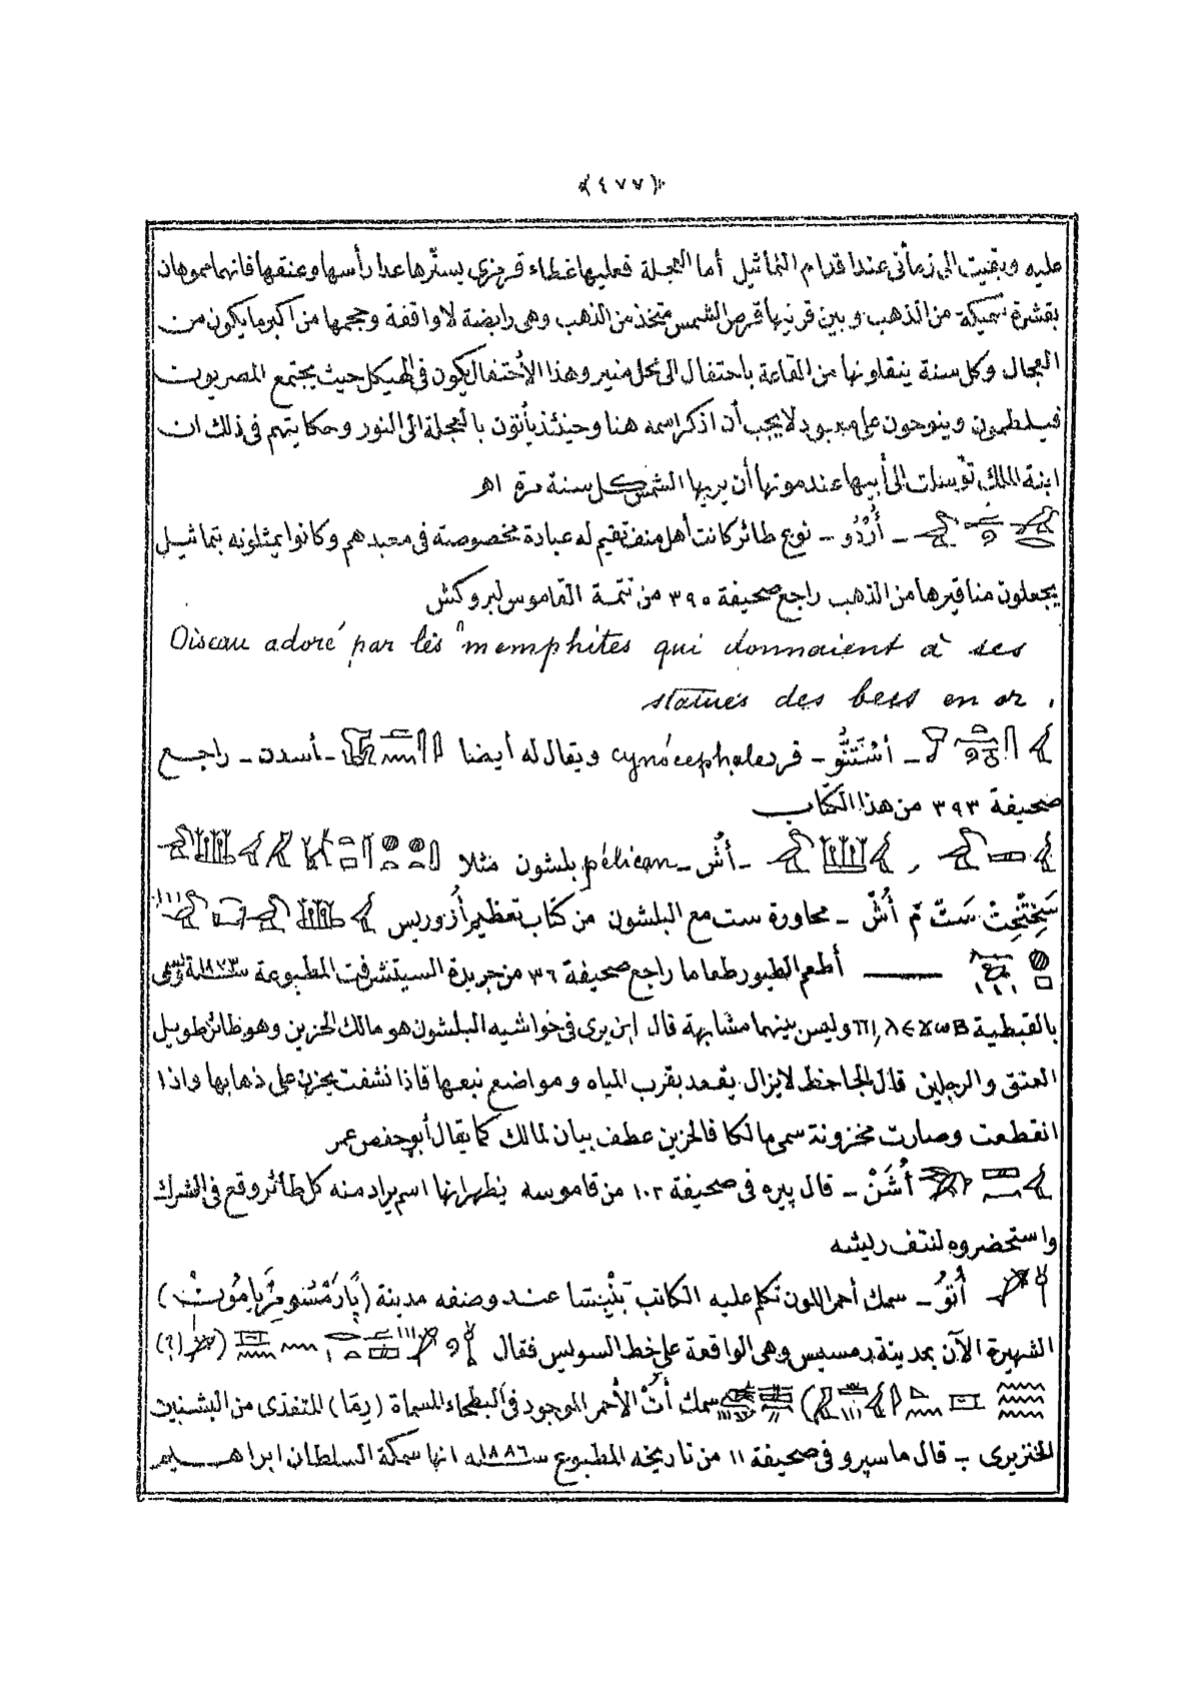 ﴿٤٧٧﴾
عليه وبقيت الى زمانى عند اقدام التماثيل أما العجلة فعليها غطاء قرمزى يسترها عدا رأسها وعنقها فانهما مموهان
بقشرة سميكة من الذهب وبين قرنيها قرص الشمس متخذ من الذهب وهى رابضة لا واقفة وحجمها من أكبر ما يكون من
العجال وكل سنة ينقلونها من القاعة باحتفال الى محل منير وهذا الأحتفال يكون فى الهيكل حيث يجتمع المصريون
فيلطمون وينوحون على معبود لا يجب أن اذكر اسمه هنا وحينئذ يأتون بالعجلة الى النور وحكايتهم فى ذلك ان
ابنة الملك توسلت الى أبيها عند موتها أن يريها الشمس كل سنة مرة اهـ
ـ أُرْدُو ـ نوع طائر كانت أهل منف تقيم له عبادة مخصوصة فى معبدهم وكانوا يمثلونه بتماثيل
يجعلون مناقيرها من الذهب راجع صحيفة ٣٩٥ من تتمة القاموس لبروكش
Oiseau adoré par les memphites qui donnaient à ses
statues des becs en or .
ـ أسْتَنُّو ـ قرد cynocephale ويقال له أيضا ـ أسدن ـ راجع
صحيفة ٣٩٣ من هذا الكتاب
, ـ أُش ـ pélican بلشون مثلا
سَتّ أُشّ ـ محاورة ست مع البلشون من كتاب تعظيم أزوريس
أطعم الطيور طعاما راجع صحيفة ٣٦ من جريدة السيتشرفت المطبوعة سنة ١٨٧٣
بالقبطية وليس بينهما مشابهة قال ابن برى فى حواشيه البلشون هو مالك الحزين وهو طائر طويل
العنق والرجلين قال الجاحظ لا يزال يقعد بقرب المياه ومواضع نبعها فاذا نشفت يحزن على ذهابها واذا
انقطعت وصارت مخزونة سمى مالكا فالحزين عطف بيان لمالك كما يقال أبو حفص عمر
أُشَنْ ـ قال پيره فى صحيفة ١٠٢ من قاموسه يظهر انها اسم يراد منه كل طائر وقع فى الشرك
واستحضروه لنتف ريشه
أُتوُ ـ سمك أحمر اللون تكلم عليه الكاتب عند وصفه مدينة
الشهيرة الآن بمدينة رمسيس وهى الواقعة على خط السويس فقال (؟)
سمك أتُ الأحمر الموجود فى البطحاء المسماة (ريمّا) المتغذى من البشنين
الخنزيرى ـ قال ماسپرو فى صحيفة ١١ من تاريخه المطبوع سنة ١٨٨٦ انها سمكة السلطان ابراهيم